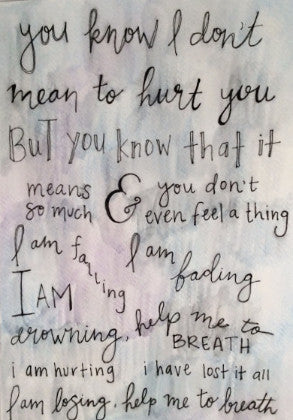 you know I don't
mean to hurt you
BUT you know that it
means so much & you don't even feel a thing
I am falling I am fading
I AM drowning, help me to BREATH
i am hurting i have lost it all
I am losing, help me to breath